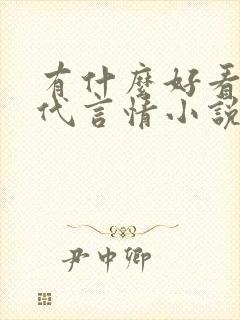 有什麼好看
代言情小說
尹中卿